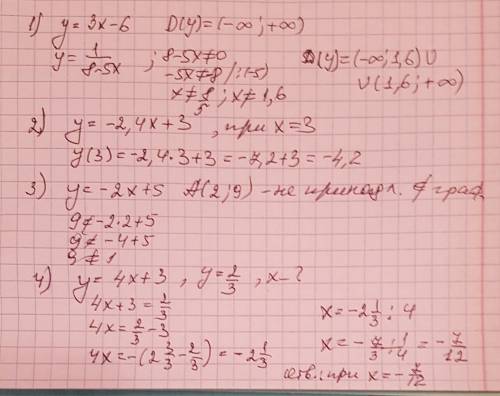 1) y = 3x-6 D(y)=(-∞; +∞)
y = 1/(8-5x) ; 8-5x≠0
-5x≠8 /:(-5)
x ≠ 8/5 ; x≠1,6
D(y)=(-∞; 1,6) ∪
∪ (1,6; +∞)
2) y = -2,4x+3 , при x=3
y(3) = -2,4·3+3 = -7,2+3 = -4,2
3) y = -2x+5 A(2;9) - не принадл. граф.
9≠-2·2+5
9≠ -4+5
9 ≠ 1
4) y = 4x+3 , y=2/3 , x-?
4x+3 = 2/3
4x = 2/3 - 3
4x = -(2 3/3 - 2/3) = -2 1/3
x = -2 1/3 : 4
x = - 7/3 · 1/4 = - 7/12
отв.: при x = - 7/12